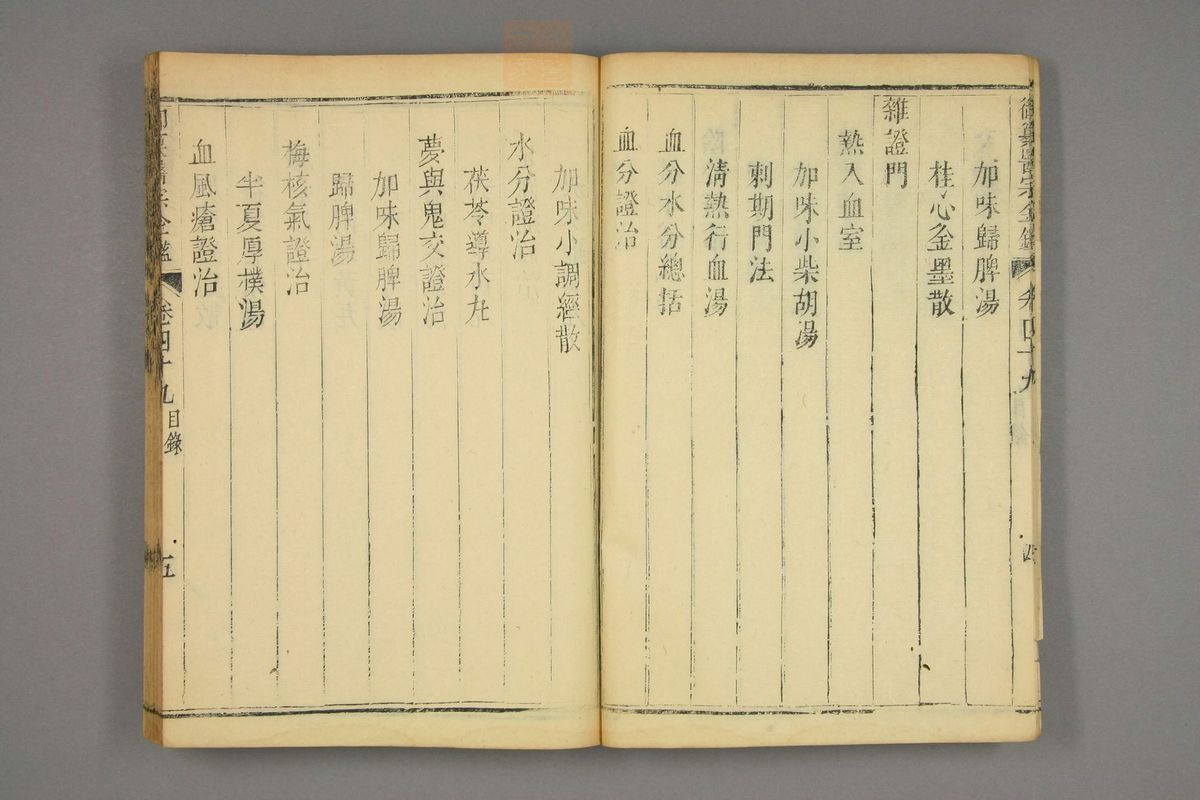 御纂醫宗金鑑 卷四十九 四
加味歸脾湯
桂心釜墨散
雜證門
熱入血室
加味小柴胡湯
刺期門法
清熱行血湯
血分水分總括
血分證治
加味小調經散
水分證治
茯苓導水丸
夢與鬼交證治
加味歸脾湯
歸脾湯
梅核氣證治
半夏厚樸湯
血風瘡證治
卷四十九 目錄 五